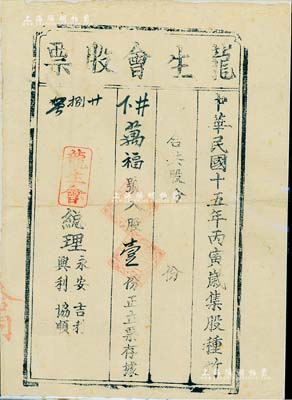 龍生會股票
中華民國十五年丙寅歲集股種
名共股分 份
萬福號入股壹份正立票存據
廿捌號
龍生會
總理 永安 吉利
興利 協順